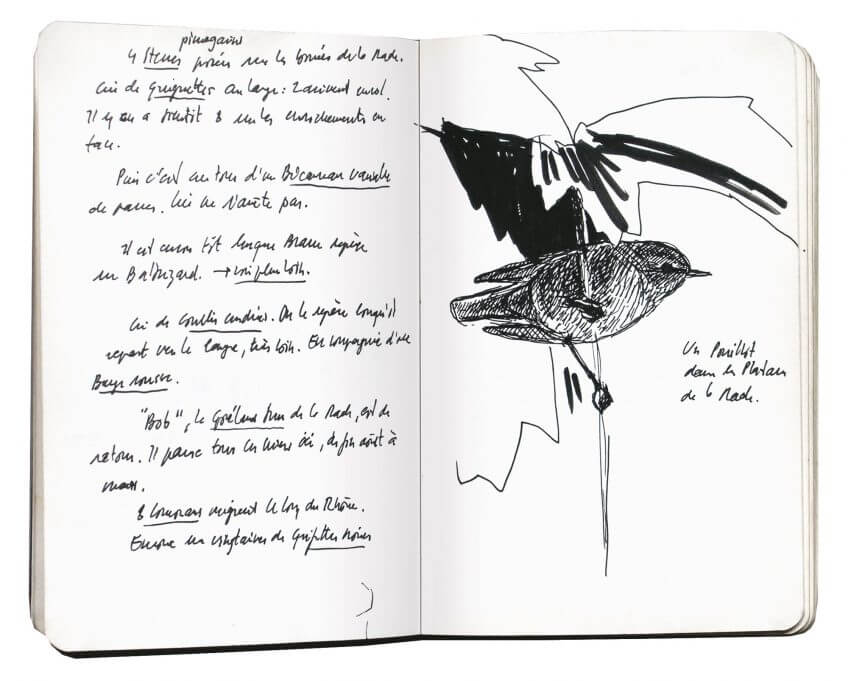 pierregarins
4 Sternes posées sur les bouées de la Rade.
Cri de Guignettes au large : 2 arrivent au vol.
Il y en a bientôt 8 sur les enrochements en
face.
Puis c'est au tour d'un Bécasseau variable
de passer. Lui ne s'arrête pas.
Il est encore tôt lorsque Bram repère
un Balbuzard. → loin plus loin.
Cri de Courlis cendré. On le repère lorsqu'il
repart vers le large, très loin. En compagnie d'une
Barge rousse.
"Bob", le Goéland brun de la Rade, est de
retour. Il passe tous les hivers ici, de fin août à
mars.
8 Cormorans migrent le long du Rhône.
Encore une vingtaine de Guifettes noires
Un Pouillot
dans les Platanes
de la Rade.